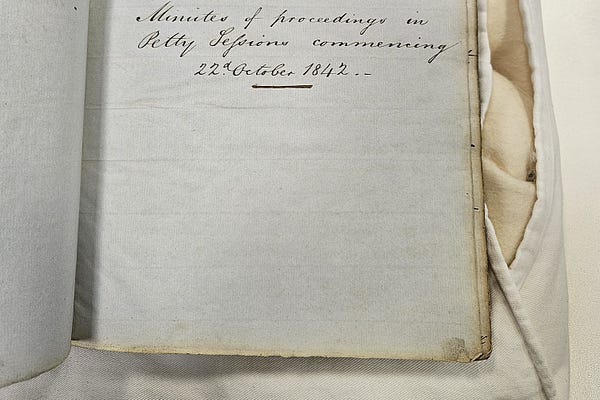 Minutes of proceedings in
Petty Sessions commencing
22d. October 1842. –